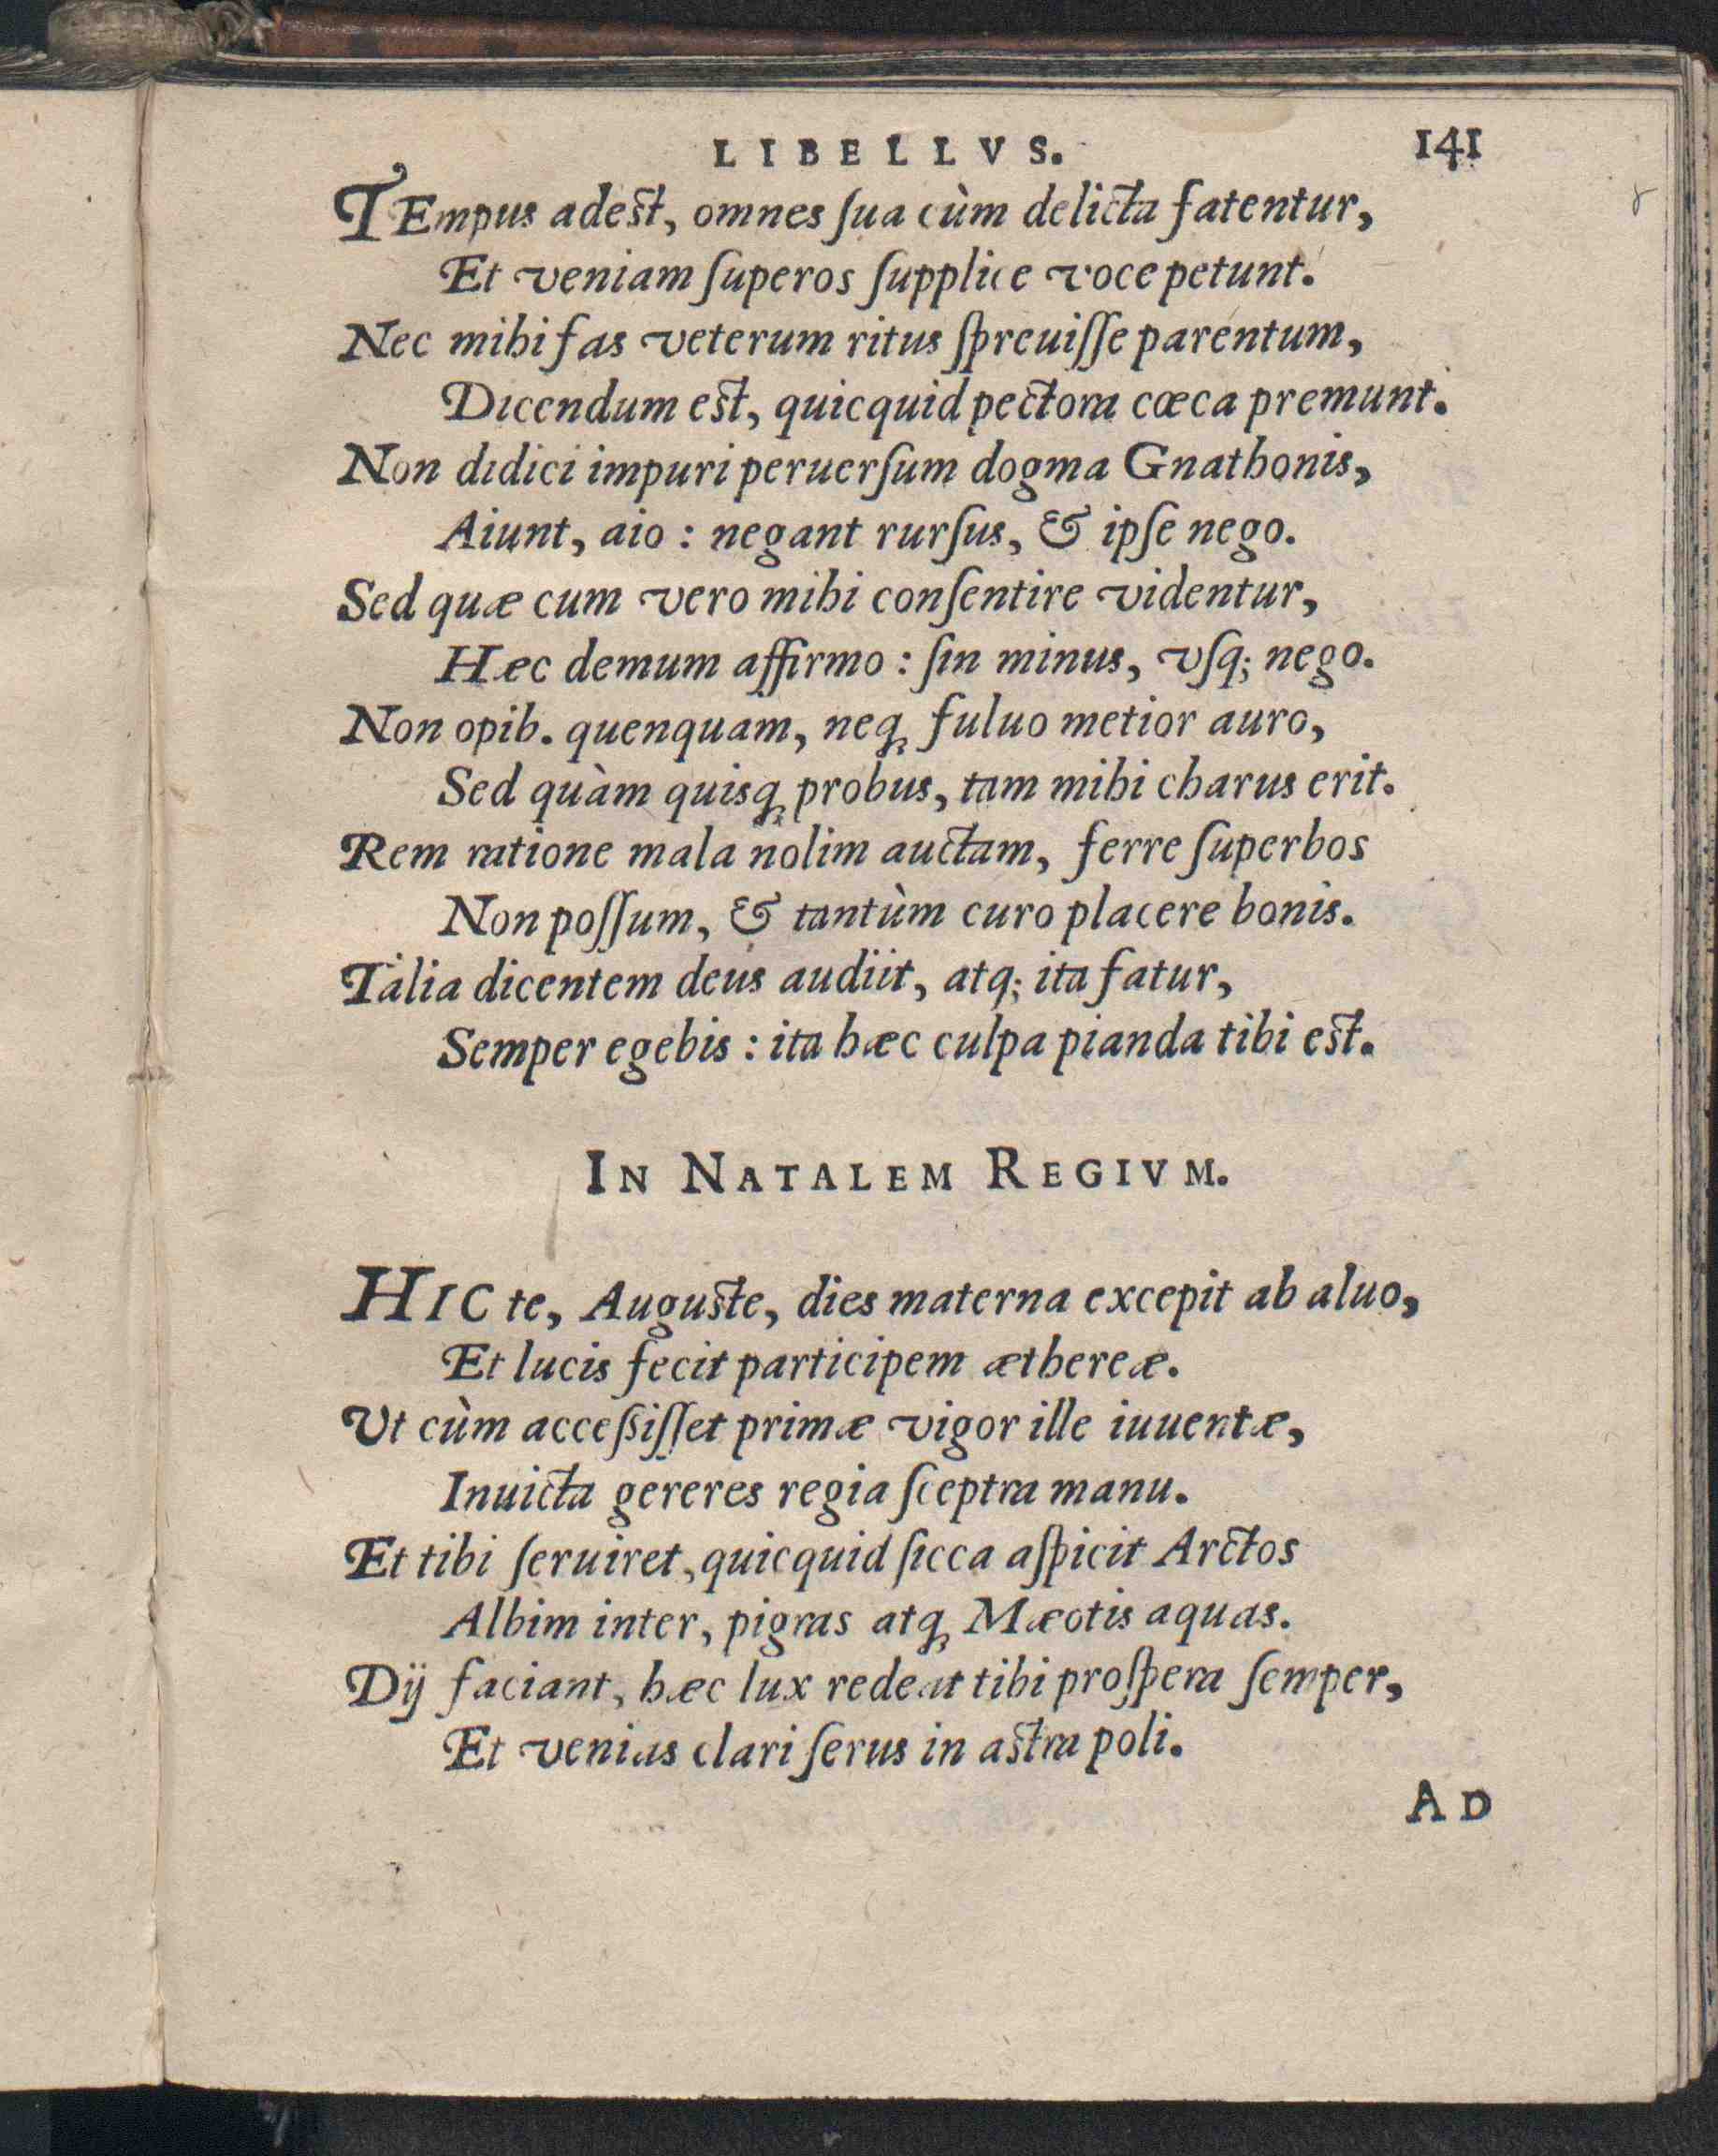 LIBELLVS. 141
TEmpus adest, omnes ſua cùm delicta fatentur,
Et veniam ſuperos ſupplice voce petunt.
Nec mihi fas veterum ritus ſpreuiſſe parentum,
Dicendum est, quicquid pectora cœca premunt.
Non didici impuri peruerſum dogma Gnathonis,
Aiunt, aio : negant rurſus, & ipſe nego.
Sed quæ cum vero mihi conſentire videntur,
Hæc demum affirmo : ſin minus, vſq; nego.
Non opib. quenquam, neq; fuluo metior auro,
Sed quàm quisq; probus, tam mihi charus erit.
Rem ratione mala nolim auctam, ferre ſuperbos
Non poſſum, & tantùm curo placere bonis.
Talia dicentem deus audiit, atq; ita fatur,
Semper egebis : ita hæc culpa pianda tibi est.
IN NATALEM REGIVM.
HIC te, Auguste, dies materna excepit ab aluo,
Et lucis fecit participem æthereæ.
Ut cùm acceßiſſet primæ vigor ille iuuentæ,
Inuicta gereres regia ſceptra manu.
Et tibi ſeruiret, quicquid ſicca aſpicit Arctos
Albim inter, pigras atq; Mæotis aquas.
Dij faciant, hæc lux redeat tibi proſpera ſemper,
Et venias clari ſerus in astra poli.
AD